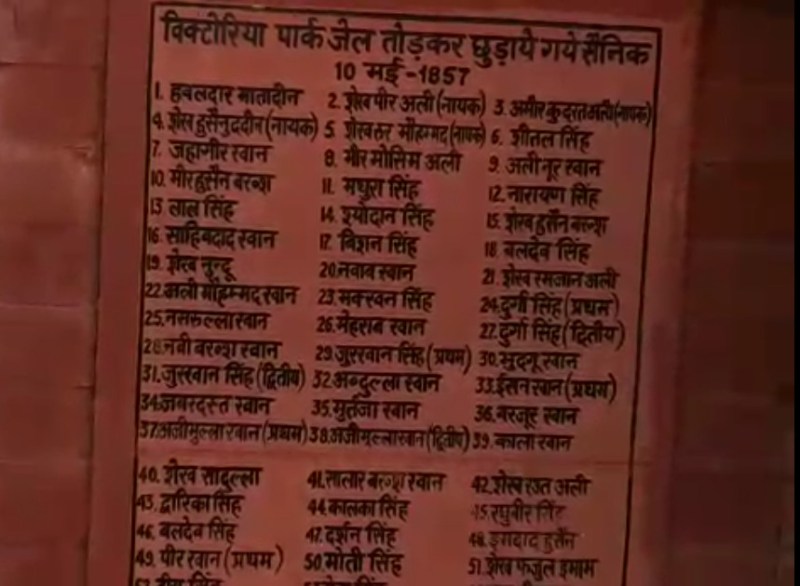 विक्टोरिया पार्क जेल तोड़कर छुड़ाये गये सैनिक
10 मई -1857
1. हवलदार मातादीन 2. शेख पीर अली (नायक) 3. अमीर कुदरत अली (नायक)
4. शेख हुसैनुददीन (नायक) 5. शेख नूर मौहम्मद (नायक) 6. शीतल सिंह
7. जहांगीर खान 8. मीर मोसिम अली 9. अली नूर खान
10. मीर हुसैन बख्श 11. मथुरा सिंह 12. नारायण सिंह
13. लाल सिंह 14. श्योदान सिंह 15. शेख हुसैन बख्श
16. साहिबदाद खान 17. बिशन सिंह 18. बलदेव सिंह
19. शेख नुन्दू 20. नवाब खान 21. शेख रमजान अली
22. अली मौहम्मद खान 23. मक्खन सिंह 24. दुर्गा सिंह (प्रथम)
25. नसरुल्ला खान 26. मेहराब खान 27. दुर्गा सिंह (द्वितीय)
28. नबी बख्श खान 29. जुरखान सिंह (प्रथम) 30. मुदगू खान
31. जुरखान सिंह (द्वितीय) 32. अब्दुल्ला खान 33. ईसन खान (प्रथम)
34. जबरदस्त खान 35. मुर्तजा खान 36. बरजूर खान
37. अजीमुल्ला खान (प्रथम) 38. अजीमुल्ला खान (द्वितीय) 39. काला खान
40. शेख सादुल्ला 41. सालार बख्श खान 42. शेख अली
43. द्वारिका सिंह 44. कालका सिंह 45. रघुबीर सिंह
46. बलदेव सिंह 47. दर्शन सिंह 48. इमदाद हुसैन
49. पीर खान (प्रथम) 50. मोती सिंह 51. शेख फजुल इमाम